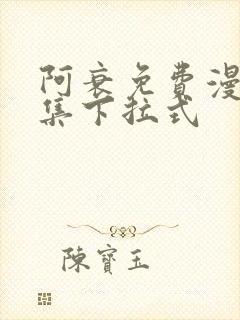 阿衰免費漫
集下拉式
陳寶玉